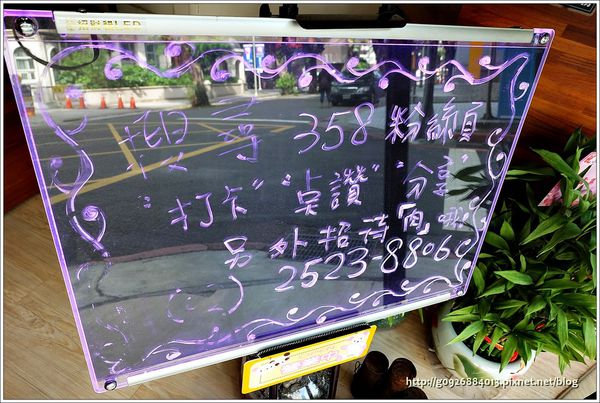 搜尋 358 粉絲頁
"打卡" "點讚" "分享"
另外招待「肉」哦!
2523-8806
http://g0926384013.pixnet.net/blog